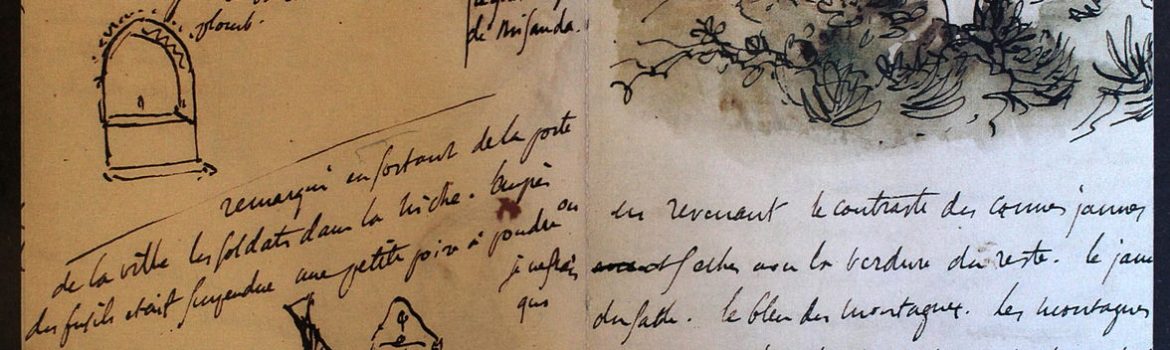 plomb.
de
remarqué en sortant de la porte
de la ville les soldats dans la niche. Auprès
des fusils était suspendue une petite poire à poudre ou
je ne sais
quoi
en revenant le contraste des cannes jaunes
sèches avec la verdure du reste. le jaune
du sable. le bleu des montagnes. les montagnes